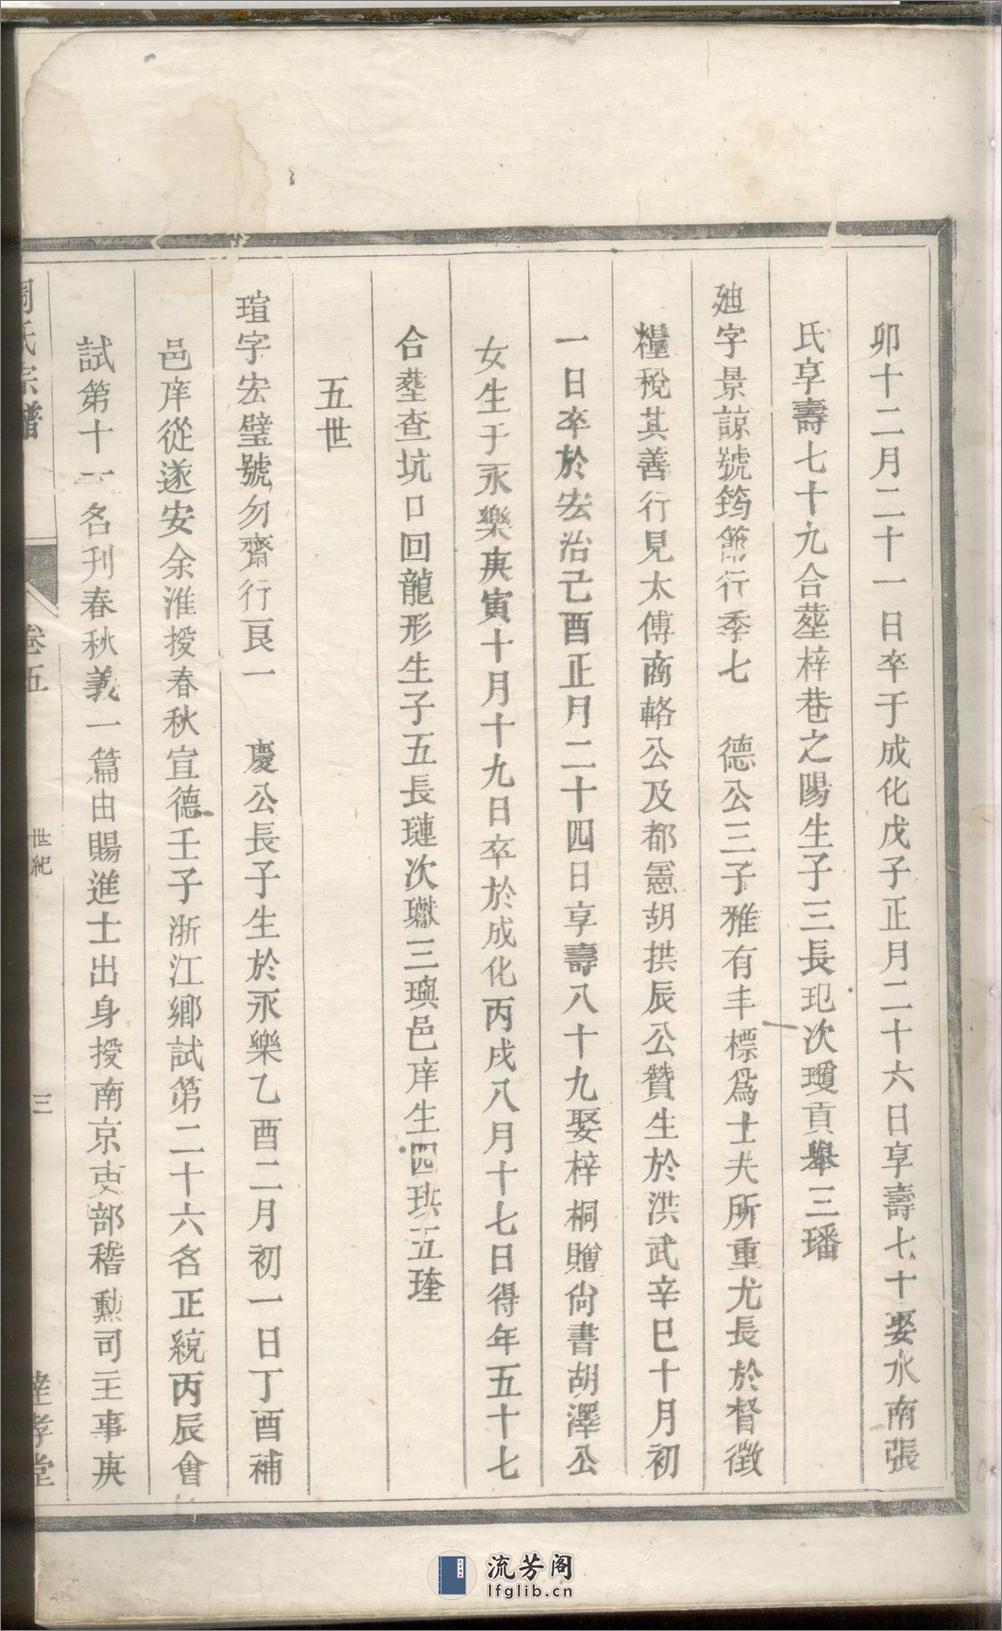 卯十二月二十一日卒于成化戊子正月二十六日享壽七十娶水南張
氏享壽七十九合塟梓巷之陽生子三長玘次瓊貢舉三璠
廸字景諒號筠節行季七　德公三子雅有丰標爲士夫所重尤長於督徵
糧稅其善行見太傅商輅公及都憲胡拱辰公贊生於洪武辛巳十月初
一日卒於宏治己酉正月二十四日享壽八十九娶梓桐贈尙書胡澤公
女生于永樂庚寅十月十九日卒於成化丙戌八月十七日得年五十七
合塟查坑口回龍形生子五長璉次瓛三璵邑庠生四珙五琒
五世
瑄字宏璧號勿齋行良一　慶公長子生於永樂乙酉二月初一日丁酉補
邑庠從遂安余淮授春秋宣德壬子浙江鄉試第二十六名正統丙辰會
試第十一名刊春秋義一篇由賜進士出身授南京吏部稽勲司主事庚
周氏宗譜
卷五
世紀
三
孝堂
流芳阁
lfglib.cn